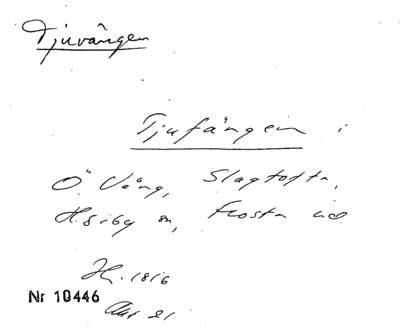 Tjuvången
Tjufången i
Ö. Vång, Slagtofta,
Hörby sn, Frosta hd
Hy. 1816
Nr 10446
Akt 21